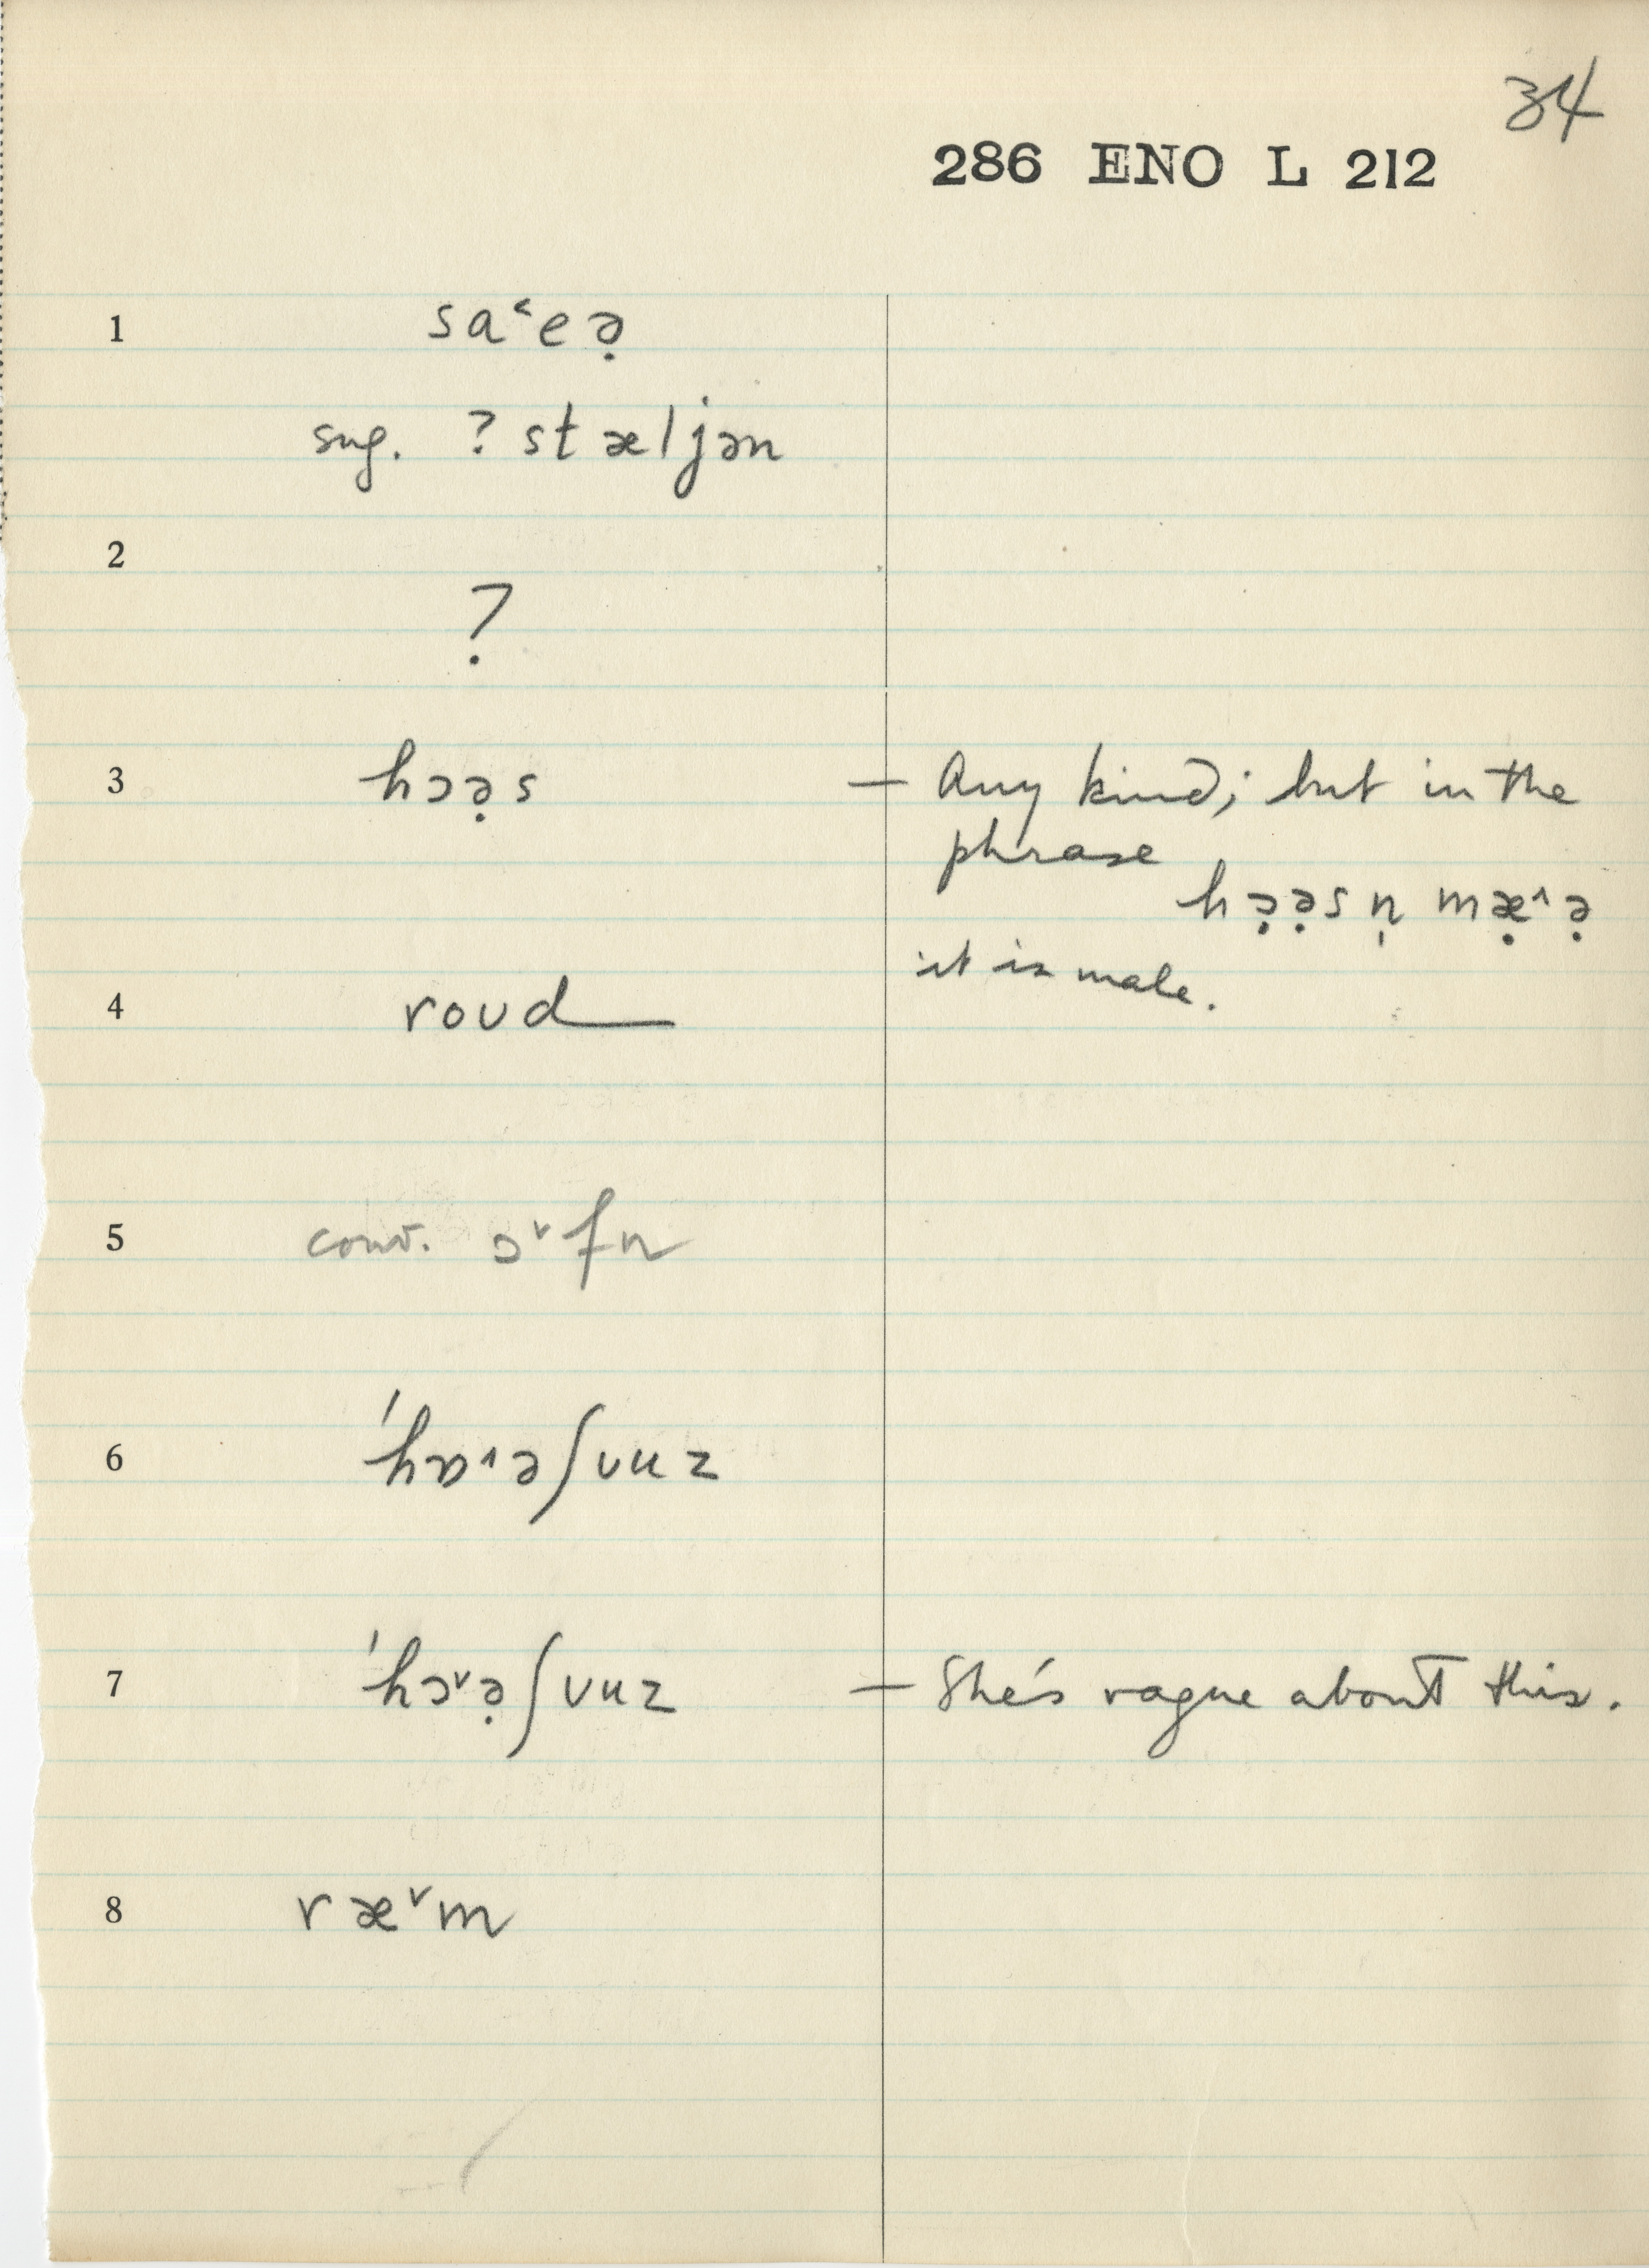 34
286 ENO L 212
1 sa˂eə̣
sug. ? stæljən
2
?
3 hɔə̣s — Any kind; but in the
phrase
hɔ̣ə̣sn̩ mæ̣˄ə̣
it is male.
4 roud
5 conv. ɔ˅fn
6 'hɒ˄əʃuuz
7 'hɔ˅ə̣ʃuuz — She's vague about this.
8 ræ˅m